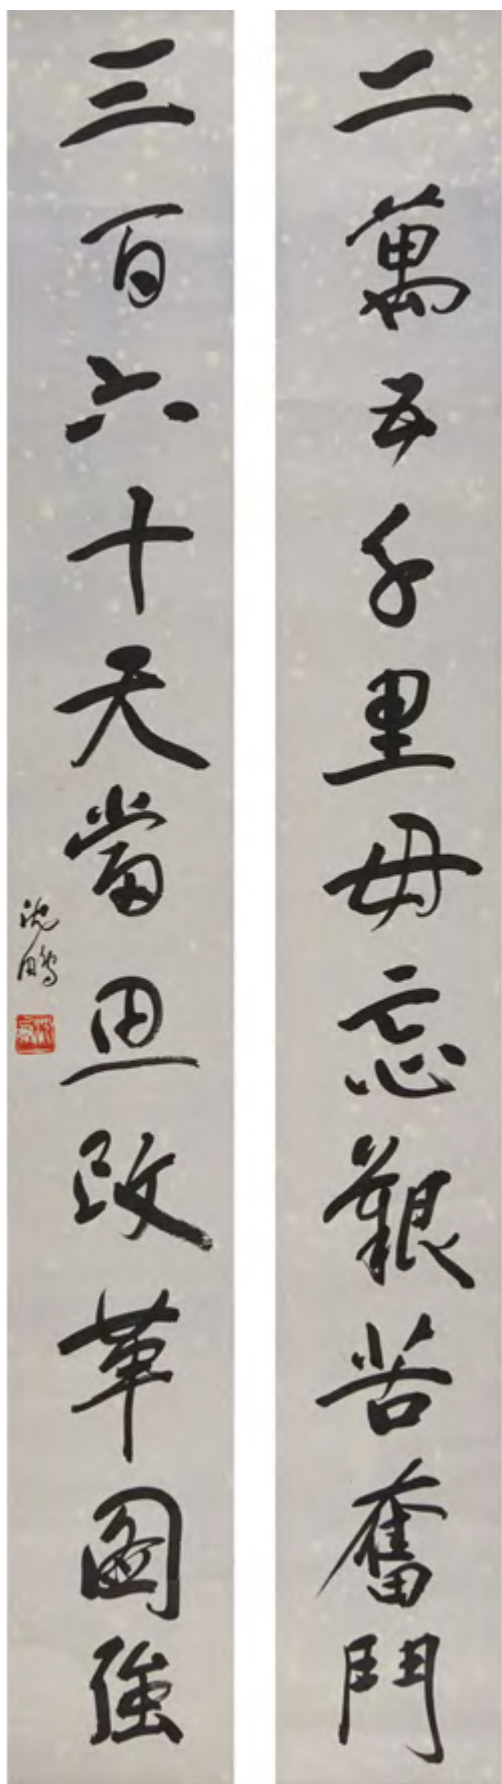 二萬五千里毋忘艱苦奮鬥
三百六十天當思改革圖強
沈鵬